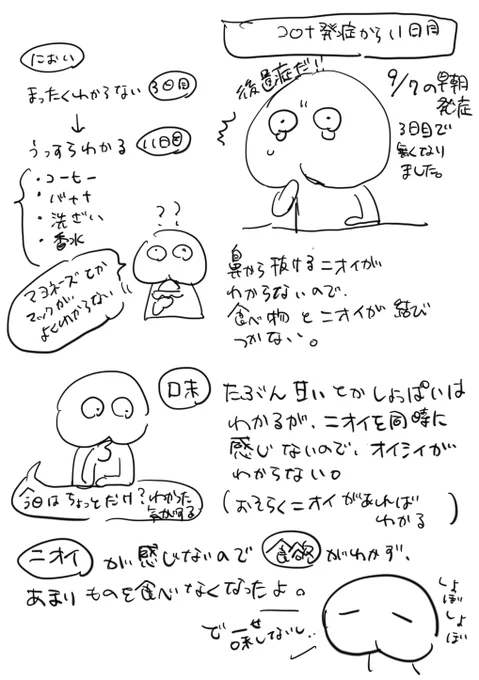 コロナ発症から11日目
におい
まったくわからない 3日目
↓
うっすらわかる 11日目
・コーヒー
・バナナ
・洗ざい
・香水
マヨネーズとか
マックが
よくわからない
??
後遺症だ!!
9/7の早朝
発症
3日目で
無くなり
ました。
鼻から抜けるニオイが
わからないので、
食べ物とニオイが結び
つかない。
口味
たぶん甘いとかしょっぱいは
わかるが、ニオイを同時に
感じないので、オイシイが
わからない。
(おそらくニオイがあれば
わかる)
今日はちょっとだけ?わかった
気がする
ニオイが感じないので食欲がわかず、
あまりものを食べなくなったよ。
しょぼしょぼ
味しないし..